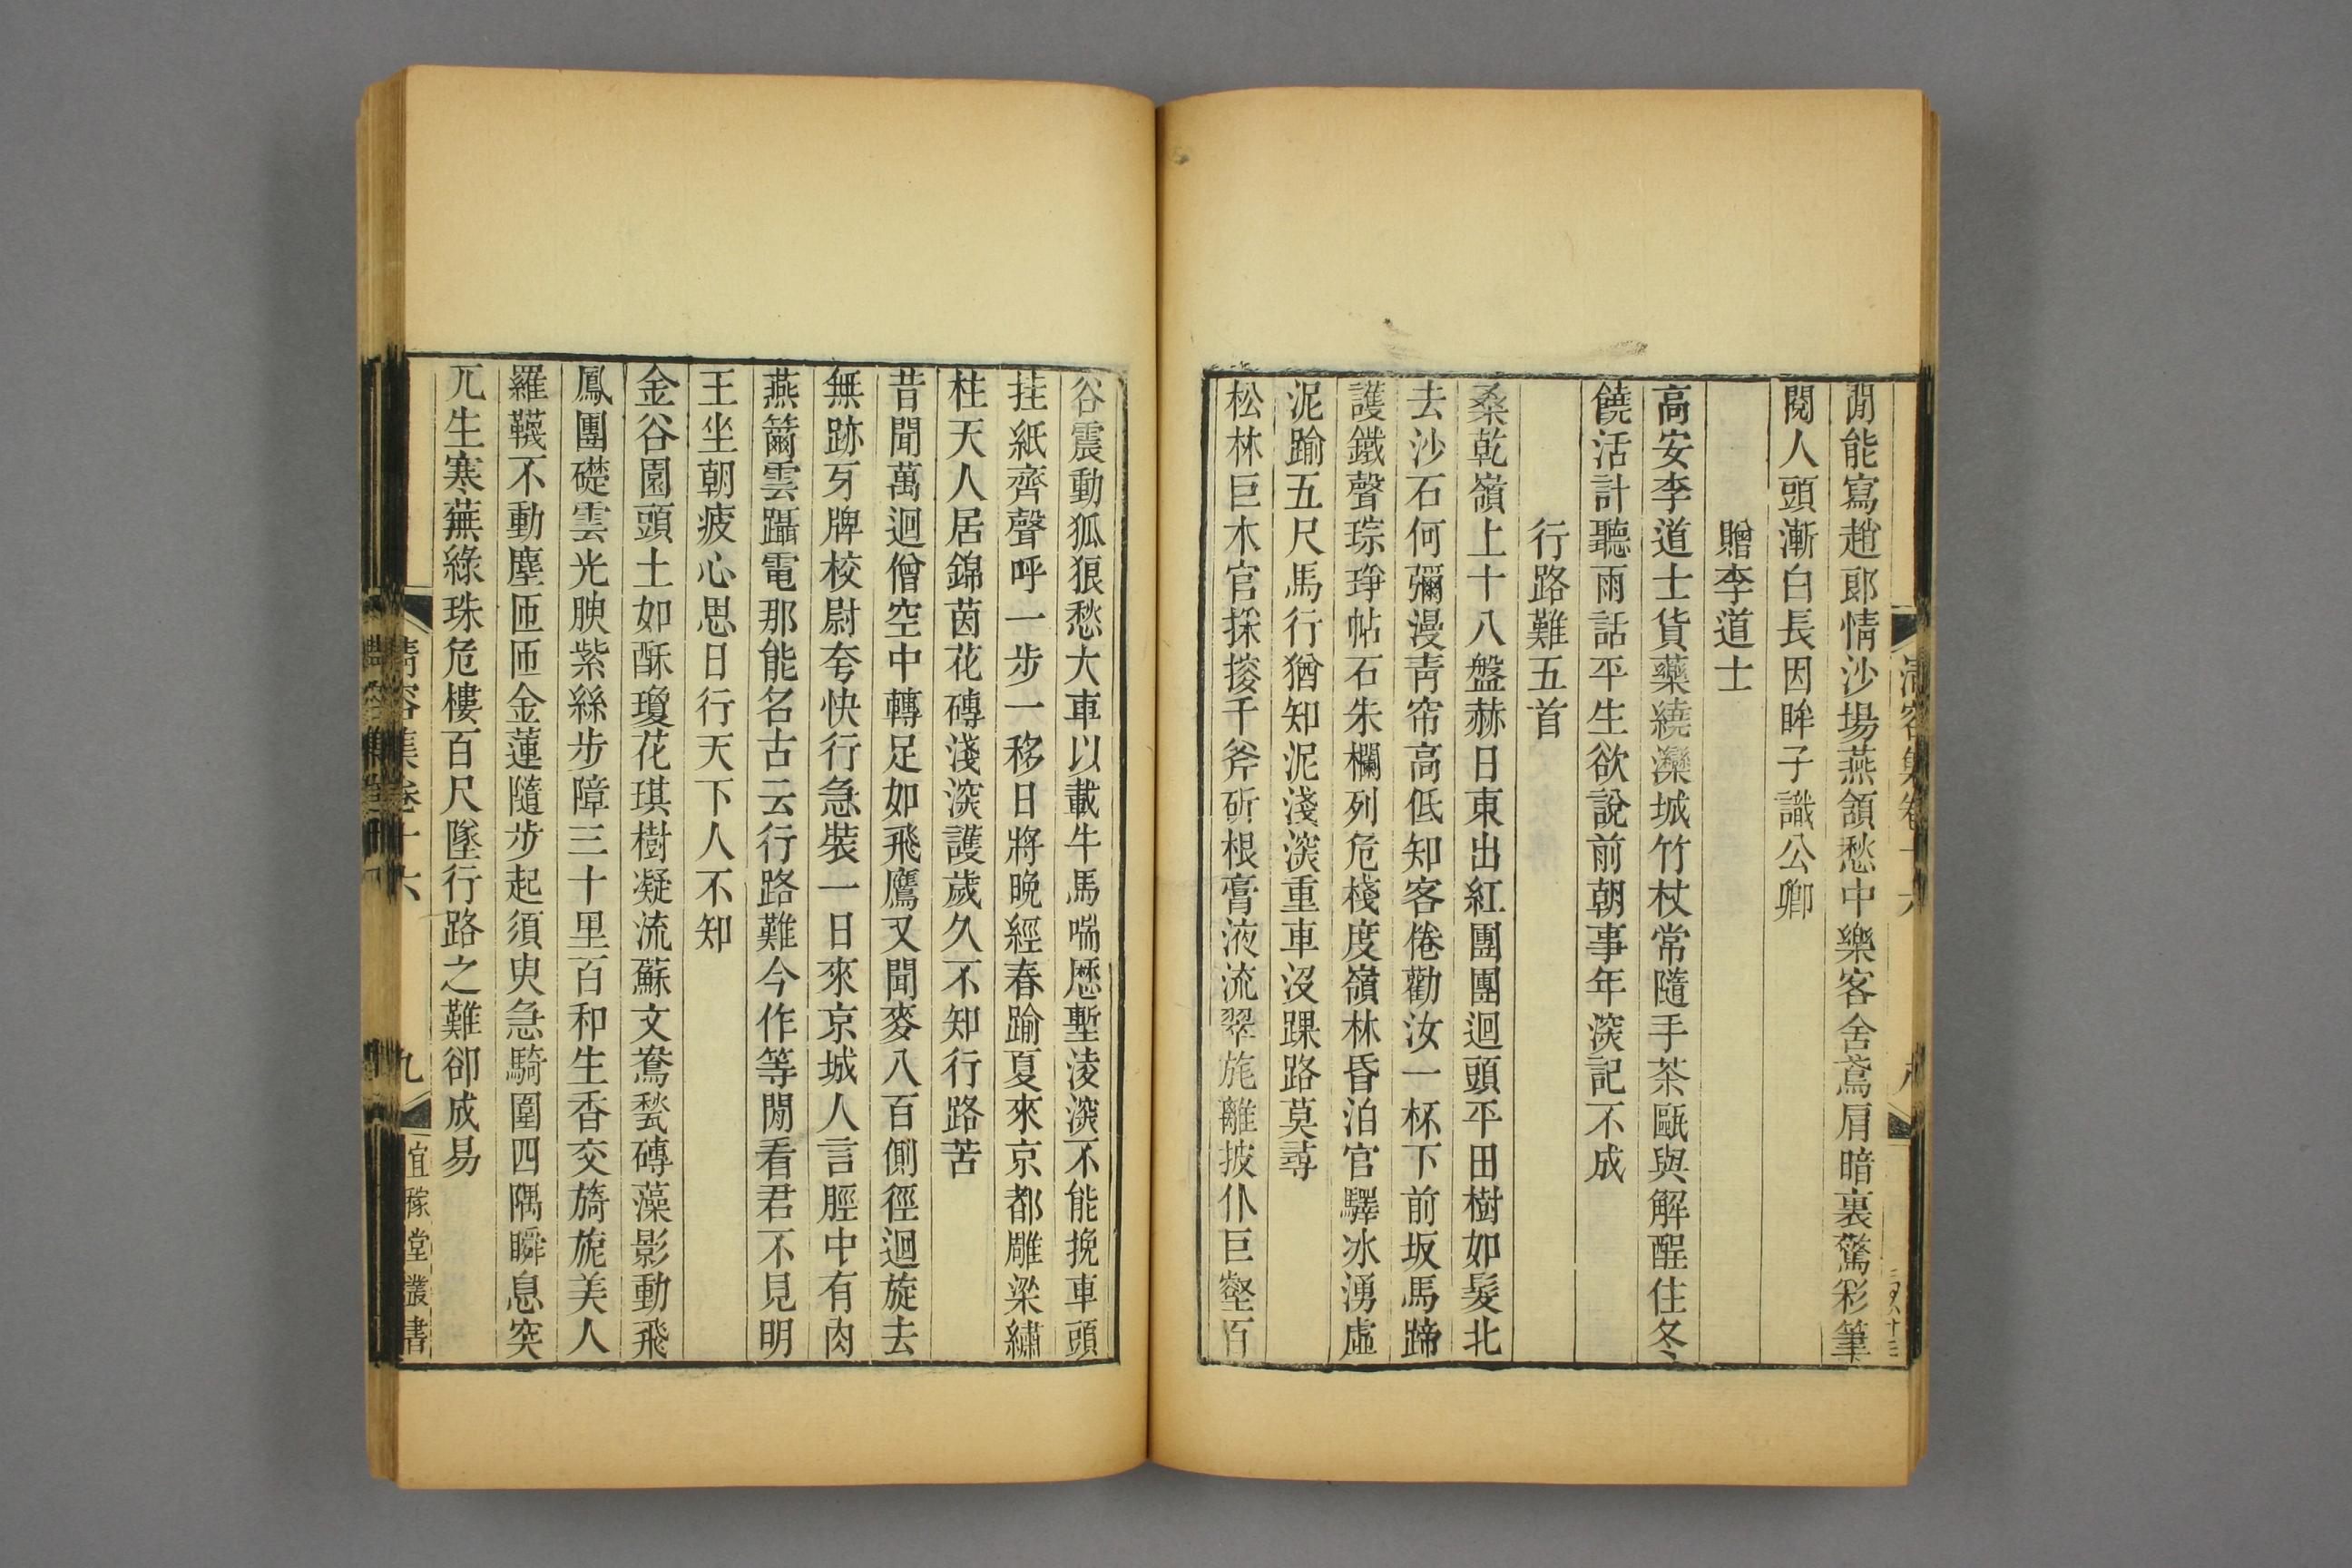 清容集卷十六
八
閒能寫趙郎情沙場燕頷愁中樂客舍鳶肩暗裏驚彩筆
閱人頭漸白長因眸子識公卿
贈李道士
高安李道士貨藥繞灤城竹杖常隨手茶甌與解酲住冬
饒活計聽雨話平生欲說前朝事年深記不成
行路難五首
桑乾嶺上十八盤赫日東出紅團團迴頭平田樹如髮北
去沙石何彌漫靑帘高低知客倦勸汝一杯下前坂馬蹄
護鐵聲琮琤帖石朱欄列危棧度嶺林昏泊官驛冰湧虛
泥踰五尺馬行猶知泥淺深重車沒踝路莫尋
松林巨木官採掞千斧斫根膏液流翠旄離披仆巨壑百
谷震動狐狼愁大車以載牛馬喘歷塹淩深不能挽車頭
挂紙齊聲呼一步一移日將晚經春踰夏來京都雕梁繡
柱天人居錦茵花磚淺深護歲久不知行路苦
昔聞萬迴僧空中轉足如飛鷹又聞麥八百側徑迴旋去
無跡牙牌校尉夸快行急裝一日來京城人言脛中有肉
燕籋雲躡電那能名古云行路難今作等閒看君不見明
王坐朝疲心思日行天下人不知
金谷園頭土如酥瓊花琪樹凝流蘇文鴛甃磚藻影動飛
鳳團礎雲光腴紫絲步障三十里百和生香交旖旎美人
羅韈不動塵匝匝金蓮隨步起須臾急騎圍四隅瞬息突
兀生寒蕪綠珠危樓百尺墜行路之難卻成易
清容集卷十六
九
宜稼堂叢書